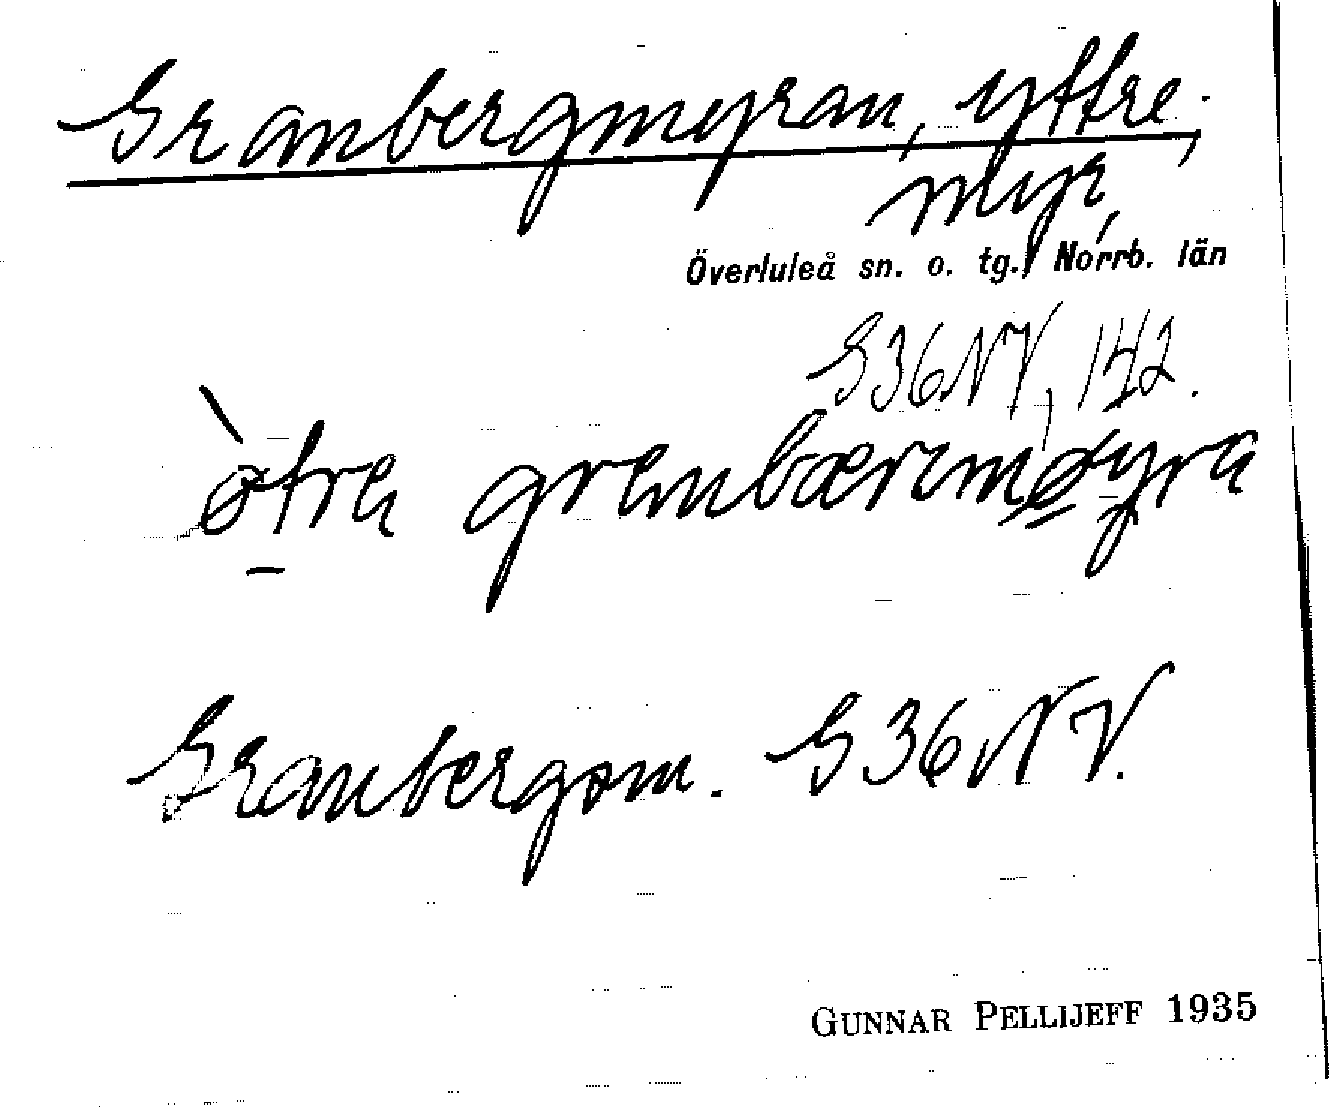 Granbergmyran, yttre,
myr,
Överluleå sn. o. tg., Norrb. län
G36NV, 142.
ø̀tra granbæremøyra
Granbergsm. G36NV.
GUNNAR PELLIJEFF 1935